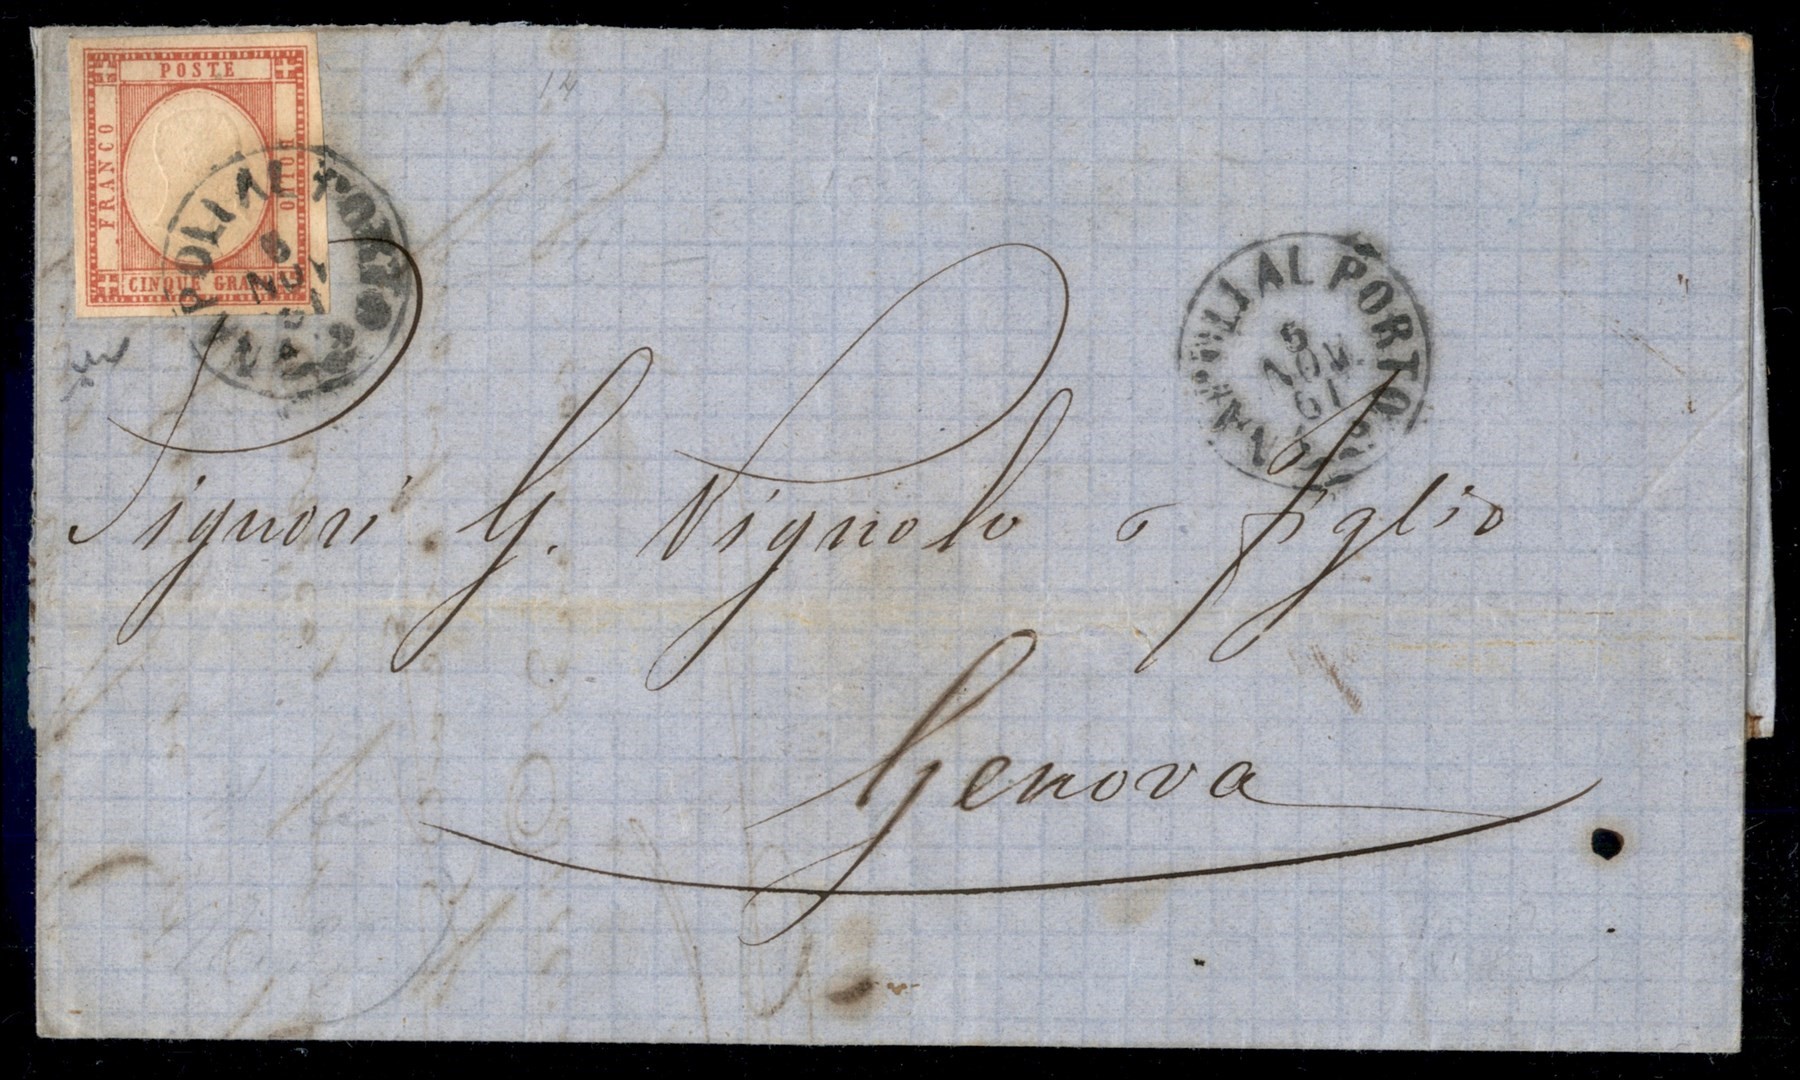 POSTE
FRANCO
BOLLO
CINQUE GRA
POLI AL PORTO
NOV
61
14
NAPOLI AL PORTO
5
NOV.
61
Signori G. Vignolo e figlio
Genova